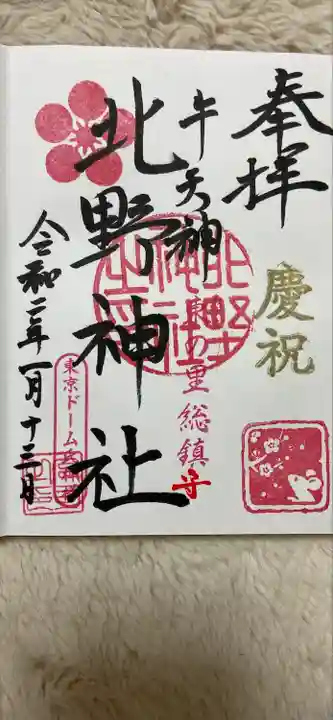 奉拝
慶祝
牛天神
北野神社
金杉の里総鎮守
東京ドーム氏神
令和二年一月十三日